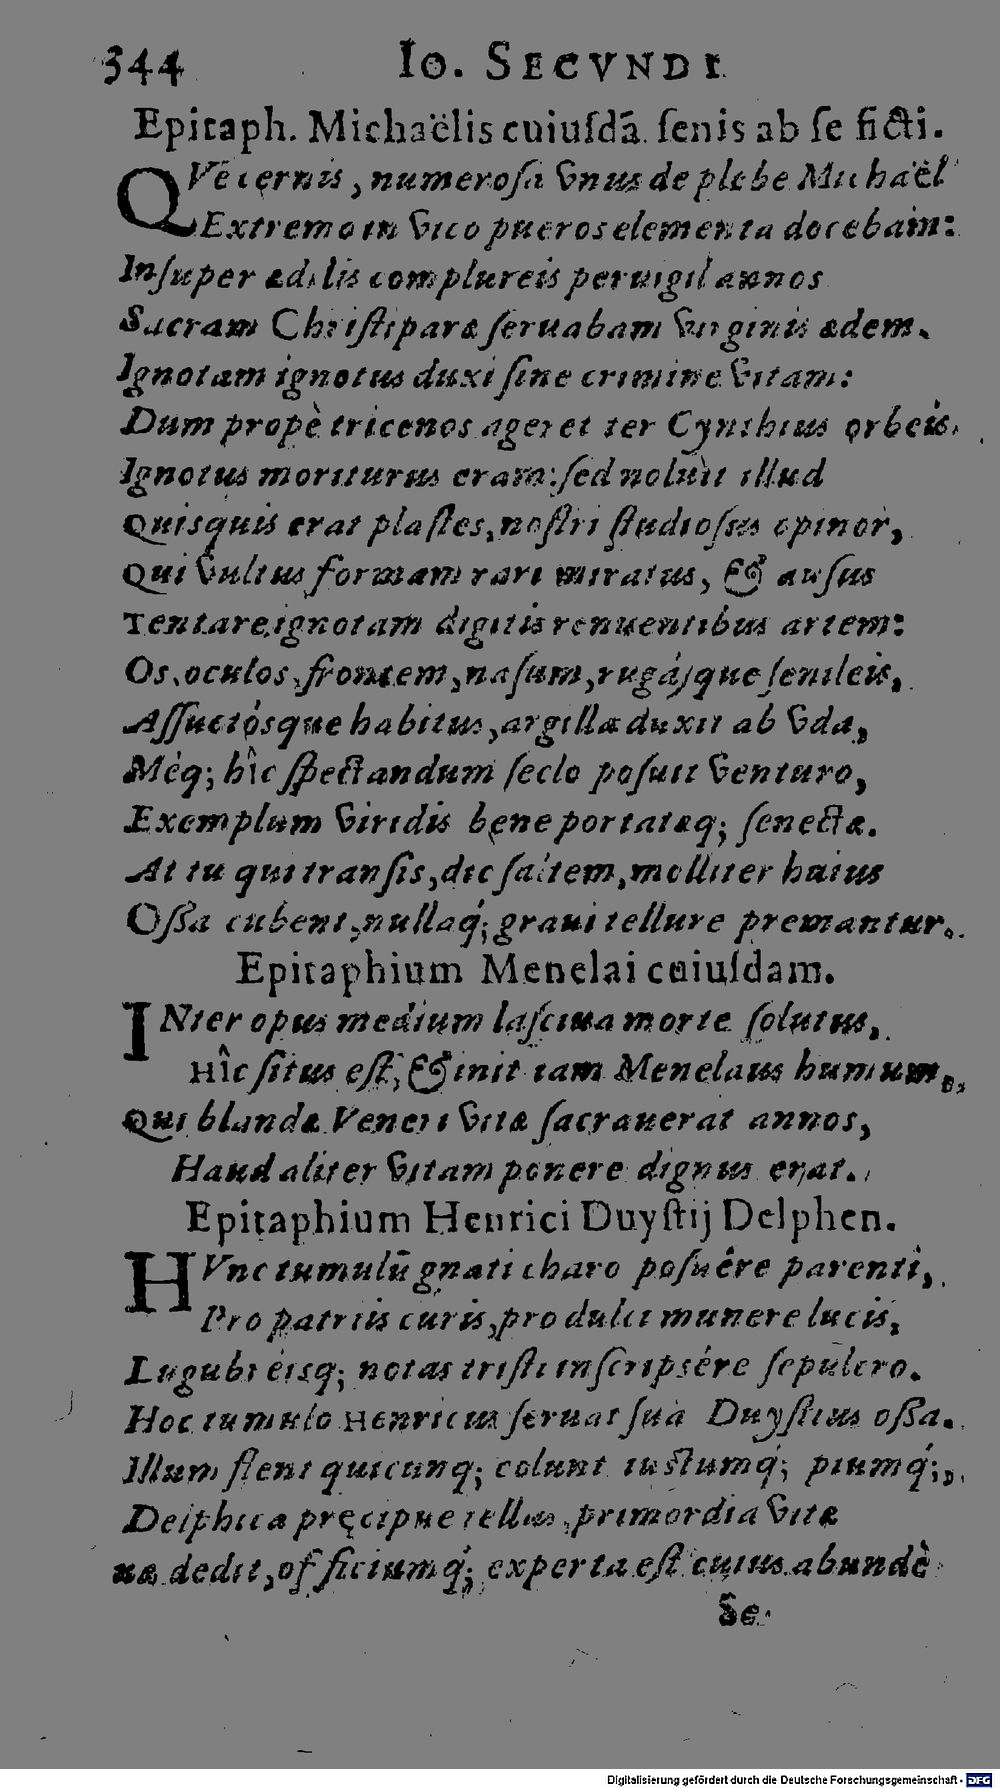 344 Io. SECVNDI
Epitaph. Michaëlis cuiuſdā ſenis ab ſe ficti.
QVe cernis, numeroſa vnus de plebe Michaël
Extremo in vico pueros elementa docebam:
Inſuper ædilis complureis peruigil annos
Sacram Chriſtiparæ ſeruabam virginis ædem.
Ignotam ignotus duxi ſine crimine vitam:
Dum propè tricenos ageret ter Cynthius orbeis.
Ignotus moriturus eram: ſed noluit illud
Quisquis erat plaſtes, noſtri ſtudioſus opinor,
Qui vultus formam rari miratus, & auſus
Tentare ignotam digitis renuentibus artem:
Os, oculos, frontem, naſum, rugáſque ſenileis,
Aſſuetósque habitus, argilla duxit ab vda,
Méq; hîc ſpectandum ſeclo poſuit venturo,
Exemplum viridis bene portatæq; ſenectæ.
At tu qui tranſis, dic ſaltem, molliter huius
Oſſa cubent, nullaq́; graui tellure premantur.
Epitaphium Menelai cuiuſdam.
INter opus medium laſciua morte ſolutus,
Hîc ſitus eſt, & init iam Menelaus humum,
Qui blandæ Veneri vitæ ſacrauerat annos,
Haud aliter vitam ponere dignus erat.
Epitaphium Henrici Duyſtij Delphen.
HVnc tumulū gnati charo poſuêre parenti,
Pro patriis curis, pro dulci munere lucis,
Lugubreisq; notas triſti inſcripsére ſepulcro.
Hoc tumulo Henricus ſeruat ſua Duyſtius oſſa.
Illum flent quicunq; colunt iuſtumq́; piumq́;,
Delphica pręcipue tellus, primordia vitæ
uæ dedit, officiumq́; experta eſt cuius abundè
Se
Digitalisierung gefördert durch die Deutsche Forschungsgemeinschaft - DFG